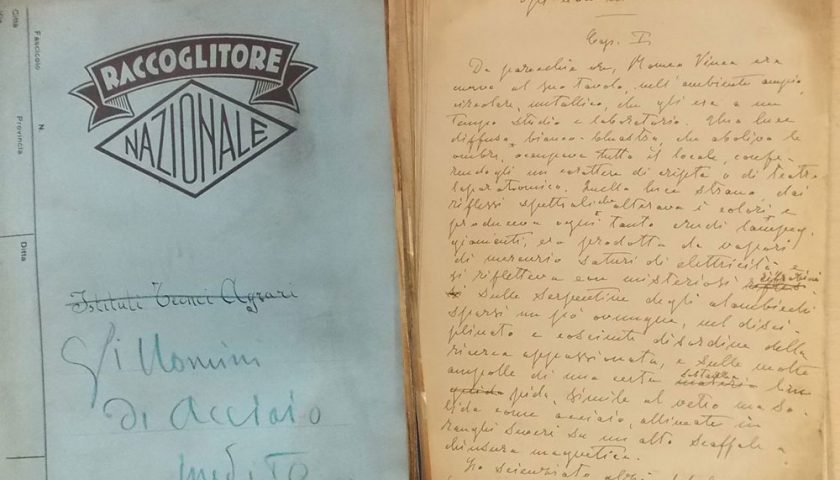 Città
Fascicolo
N.
Provincia
Ditta
RACCOGLITORE
NAZIONALE
Istituti Tecnici Agrari
Gli Uomini
Di Acciaio
inedito
Cap. I.
Da parecchie ore, Romeo Vinca era
curvo al suo tavolo, nell'ambiente ampio,
circolare, metallico, che gli era a un
tempo studio e laboratorio. Una luce
diffusa, bianco-bluastra, che aboliva le
ombre, occupava tutto il locale, confe-
rendogli un carattere di cripta o di teatro
Quella luce strana, dai
riflessi spettrali che alterava i colori e
produceva ogni tanto crudi lampeg-
giamenti, era prodotta da vapori
di mercurio saturi di elettricità e
si rifletteva con misteriosi
sulle serpentine degli alambicchi
sparsi un po' ovunque, nel disci-
plinato e cosciente disordine della
ricerca appassionata, e sulle molte
ampolle di una certa sostanza
simile al vetro ma so-
lida come acciaio, allineate in
ranghi severi su un alto scaffale a
chiusura magnetica.
Lo scienziato